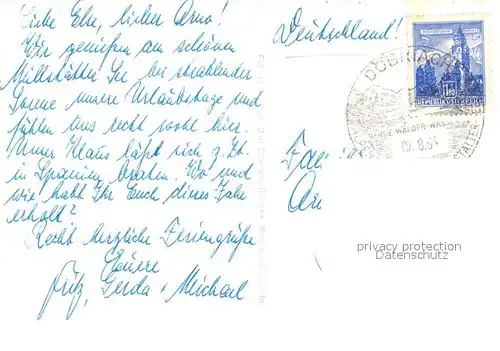 Liebe Else, lieber Arno!
Wir genießen am schönen
Millstätter See bei strahlender
Sonne unsere Urlaubstage und
fühlen uns recht wohl hier.
Unser Klaus läßt sich z. Zt.
in Spanien braten. Wo und
wie habt Ihr Euch dieses Jahr
erholt?
Recht herzliche Feriengrüße
Euere
Fritz, Gerda + Michael
Deutschland!
REPUBLIK ÖSTERREICH
DÖBRIACH
BERGE-WÄLDER-WASSER
Fa
Ar
privacy protection
Datenschutz